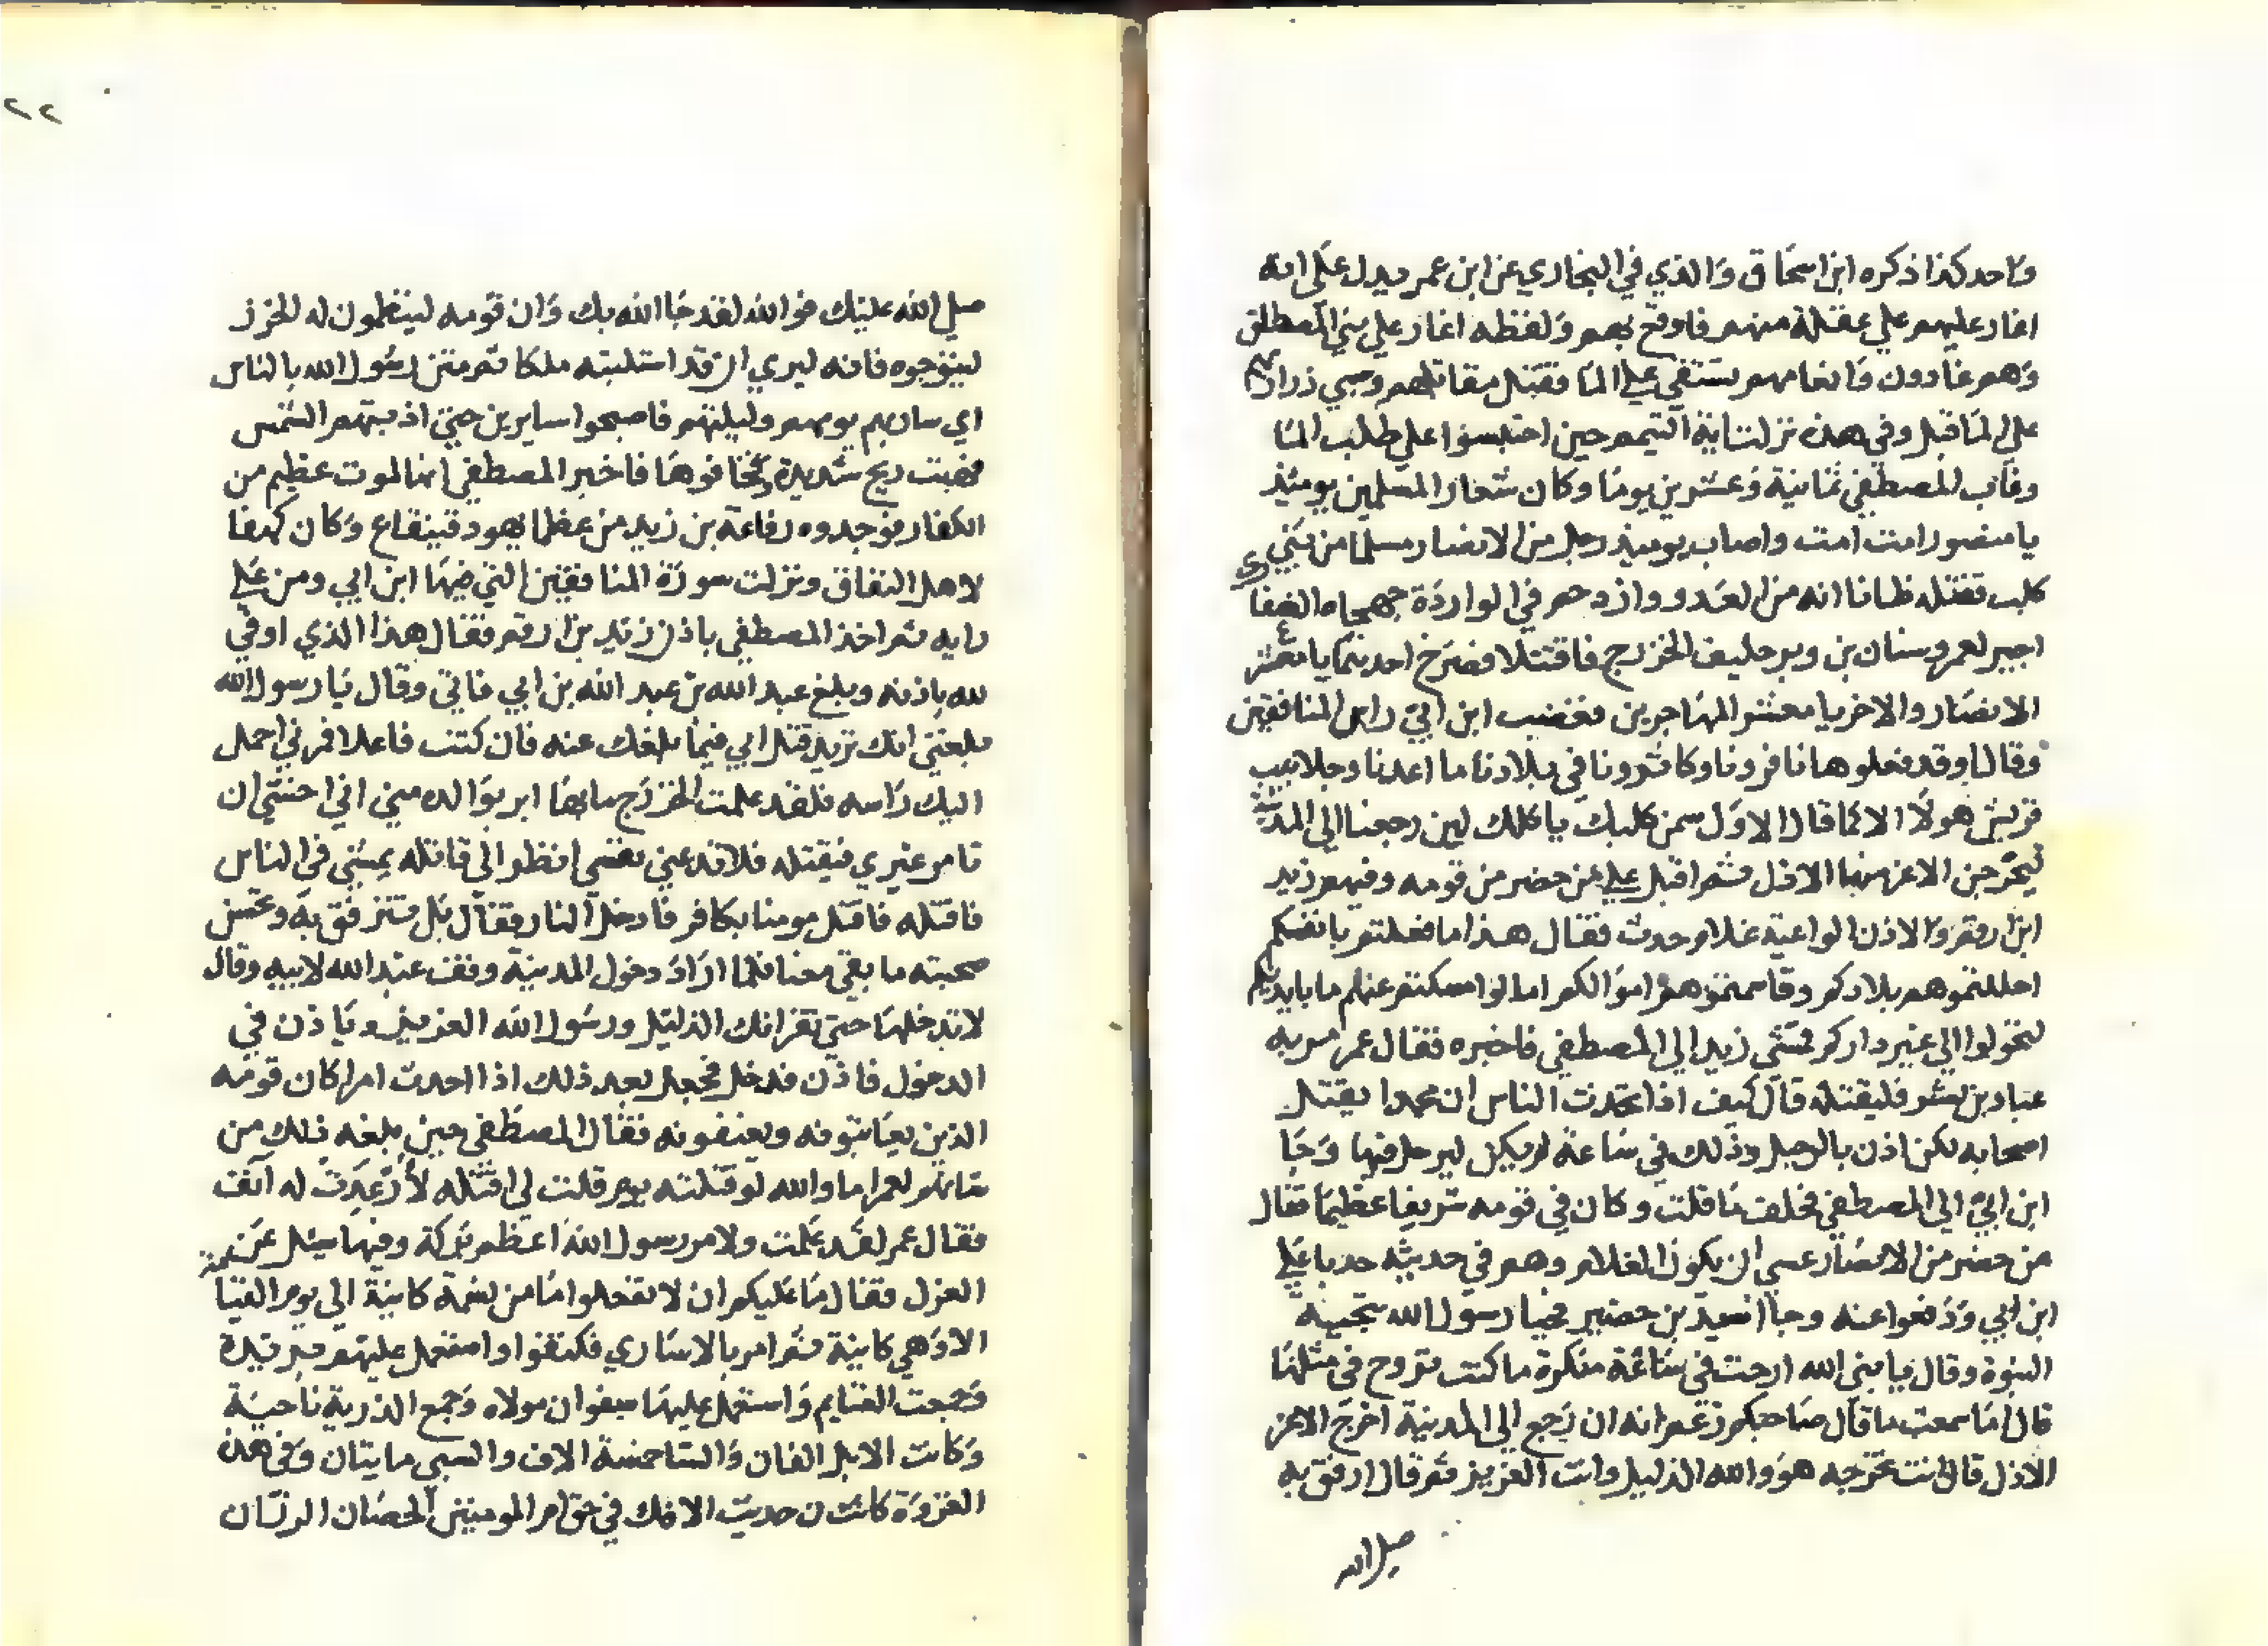 واحد كذا ذكره ابن اسحاق والذي في البخاري عن ابن عمر يدل على انه
اغار عليهم على غفلة منهم فاوقع بهم ولفظه اغار علي بني المصطلق
وهم غادون وانعامهم تستقى على الما فقتل مقاتلهم وسبي ذراريهم
على الما قيل وفي هذه نزلت اية التيمم حين احتبسوا على طلب الما
وغاب المصطفي ثمانية وعشرين يوما وكان شعار المسلمين يوميذ
يا منصور امت امت واصاب يوميذ رجل من الانصار مسلما من بني
كلب فقتله ظانا انه من العدو وازدحم في الواردة جهجاه الغفاري
اجير لعمر وسنان بن وبر حليف الخزرج فاقتتلا فصرخ احدهما يا معشر
الانصار والاخر يا معشر المهاجرين فغضب ابن ابي راس المنافقين
وقال اوقد فعلوها نافرونا وكاثرونا في بلادنا ما اعدنا وجلابيب
قريش هولا الا كما قال الاول سمن كلبك ياكلك لين رجعنا الى المدينة
ليخرجن الاعز منها الاذل ثم اقبل على من حضر من قومه وفيهم زيد
ابن ارقم والاذن الواعية غلام حدث فقال هذا ما فعلتم بانفسكم
احللتموهم بلادكم وقاسمتموهم اموالكم اما لو امسكتم عنهم ما بايديكم
لتحولوا الي غير داركم فمشي زيد الي المصطفي فاخبره فقال عمر مر به
عباد بن بشر فليقتله قال كيف اذا تحدث الناس ان محمدا يقتل
اصحابه لكن اذن بالرحيل وذلك في ساعة لم يكن ليرحل فيها وجا
ابن ابي الي المصطفي فحلف ما قلت وكان في قومه شريفا عظيما فقال
من حضر من الانصار عسي ان يكون الغلام وهم في حديثه حدبا على
ابن ابي ودفعوا عنه وجا اسيد بن حضير فحيا رسول الله بتحية
النبوة وقال يا نبي الله ارحت في ساعة منكرة ما كنت تروح في مثلها
قال اما سمعت ما قال صاحبكم زعم انه ان رجع الي المدينة اخرج الاعز
الاذل قال انت تخرجه هو والله الذليل وانت العزيز ثم قال ارفق به
صلى الله
٢٢
صلي الله عليك فوالله لقد جا الله بك وان قومه لينظمون له الخرز
ليتوجوه فانه ليري ان قد استلبته ملكا ثم متن رسول الله بالناس
اي سار بهم يومهم وليلتهم فاصبحوا سايرين حتي اذتهم الشمس
فهبت ريح شديدة فخافوها فاخبر المصطفي انها لموت عظيم من
الكفار فوجدوه رفاعة بن زيد من عظما يهود قينقاع وكان كهفا
لاهل النفاق ونزلت سورة المنافقين التي فيها ابن ابي ومن على
رايه ثم اخذ المصطفي باذن زيد بن ارقم فقال هذا الذي اوفي
لله باذنه وبلغ عبد الله بن عبد الله بن ابي فاتي وقال يا رسول الله
بلغني انك تريد قتل ابي فيما بلغك عنه فان كنت فاعلا فمرني احمل
اليك راسه فلقد علمت الخزرج ما بها ابر بوالده مني اني اخشي ان
تامر غيري فيقتله فلا تدعني نفسي انظر الي قاتله يمشي في الناس
فاقتله فاقتل مومنا بكافر فادخل النار فقال بل نترفق به ونحسن
صحبته ما بقي معنا فلما اراد دخول المدينة وقف عبد الله لابيه وقال
لا تدخلها حتي تقر انك الذليل ورسول الله العزيز وياذن في
الدخول فاذن فدخل فجعل بعد ذلك اذا احدث امرا كان قومه
الذين يعاتبونه ويعنفونه فقال المصطفي حين بلغه ذلك من
شانهم لعمر اما والله لو قتلته يوم قلت لي اقتله لأرعدت له آنف
فقال عمر لقد علمت ولامر رسول الله اعظم بركة وفيها سئل عن
العزل فقال ما عليكم ان لا تفعلوا ما من نسمة كاينة الى يوم القيامة
الا وهي كاينة ثم امر بالاساري فكتفوا واستعمل عليهم بريدة
وجمعت الغنايم واستعمل عليها صفوان مولاه وجمع الذرية ناحية
وكانت الابل الفان والشا خمسة الاف والسبي مايتان وفي هذه
الغزوة كانت حديث الافك في حق ام المومنين الحصان الرزان